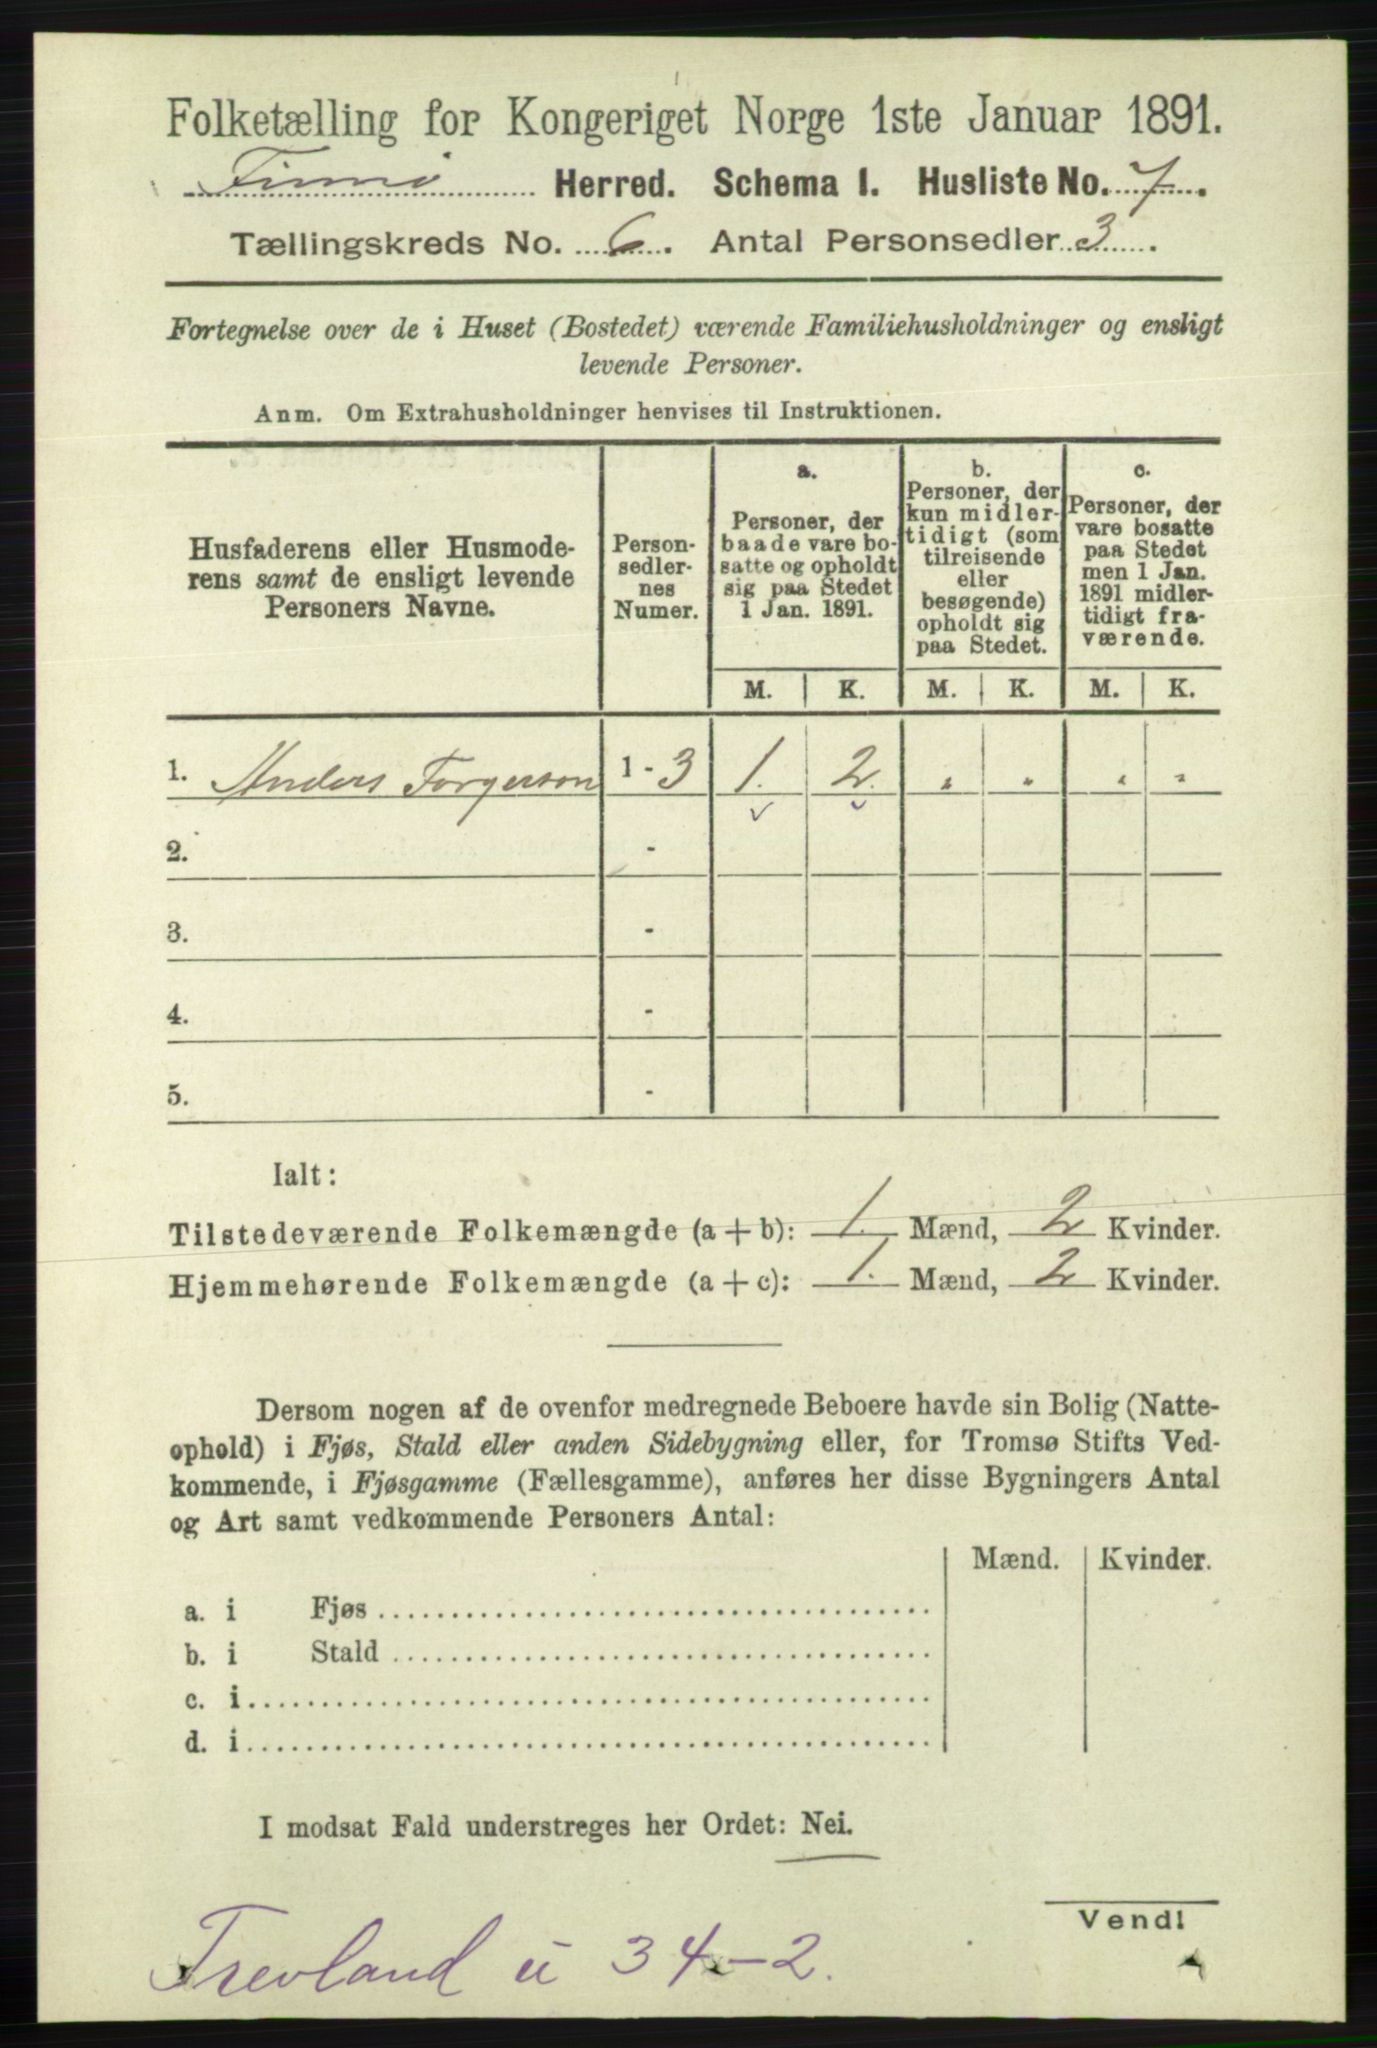 Folketælling for Kongeriget Norge 1ste Januar 1891.
Finnø Herred. Schema I. Husliste No. 7.
Tællingskreds No. 6. Antal Personsedler 3.
Fortegnelse over de i Huset (Bostedet) værende Familiehusholdninger og ensligt
levende Personer.
Anm. Om Extrahusholdninger henvises til Instruktionen.
Husfaderens eller Husmode-
rens samt de ensligt levende
Personers Navne.
Person-
sedler-
nes
Numer.
a.
Personer, der
baade vare bo-
satte og opholdt
sig paa Stedet
1 Jan. 1891.
b.
Personer, der
kun midler-
tidigt (som
tilreisende
eller
besøgende)
opholdt sig
paa Stedet.
c.
Personer, der
vare bosatte
paa Stedet
men 1 Jan.
1891 midler-
tidigt fra-
værende.
M. K. M. K. M. K.
1. Anders Torgerson 1 - 3 1. 2. " " " "
2. -
3. -
4. -
5. -
Ialt:
Tilstedeværende Folkemængde (a + b): 1. Mænd, 2 Kvinder.
Hjemmehørende Folkemængde (a + c): 1. Mænd, 2 Kvinder.
Dersom nogen af de ovenfor medregnede Beboere havde sin Bolig (Natte-
ophold) i Fjøs, Stald eller anden Sidebygning eller, for Tromsø Stifts Ved-
kommende, i Fjøsgamme (Fællesgamme), anføres her disse Bygningers Antal
og Art samt vedkommende Personers Antal:
Mænd. Kvinder.
a. i Fjøs
b. i Stald
c. i
d. i
I modsat Fald understreges her Ordet: Nei.
Vend!
Trevland u 34-2.